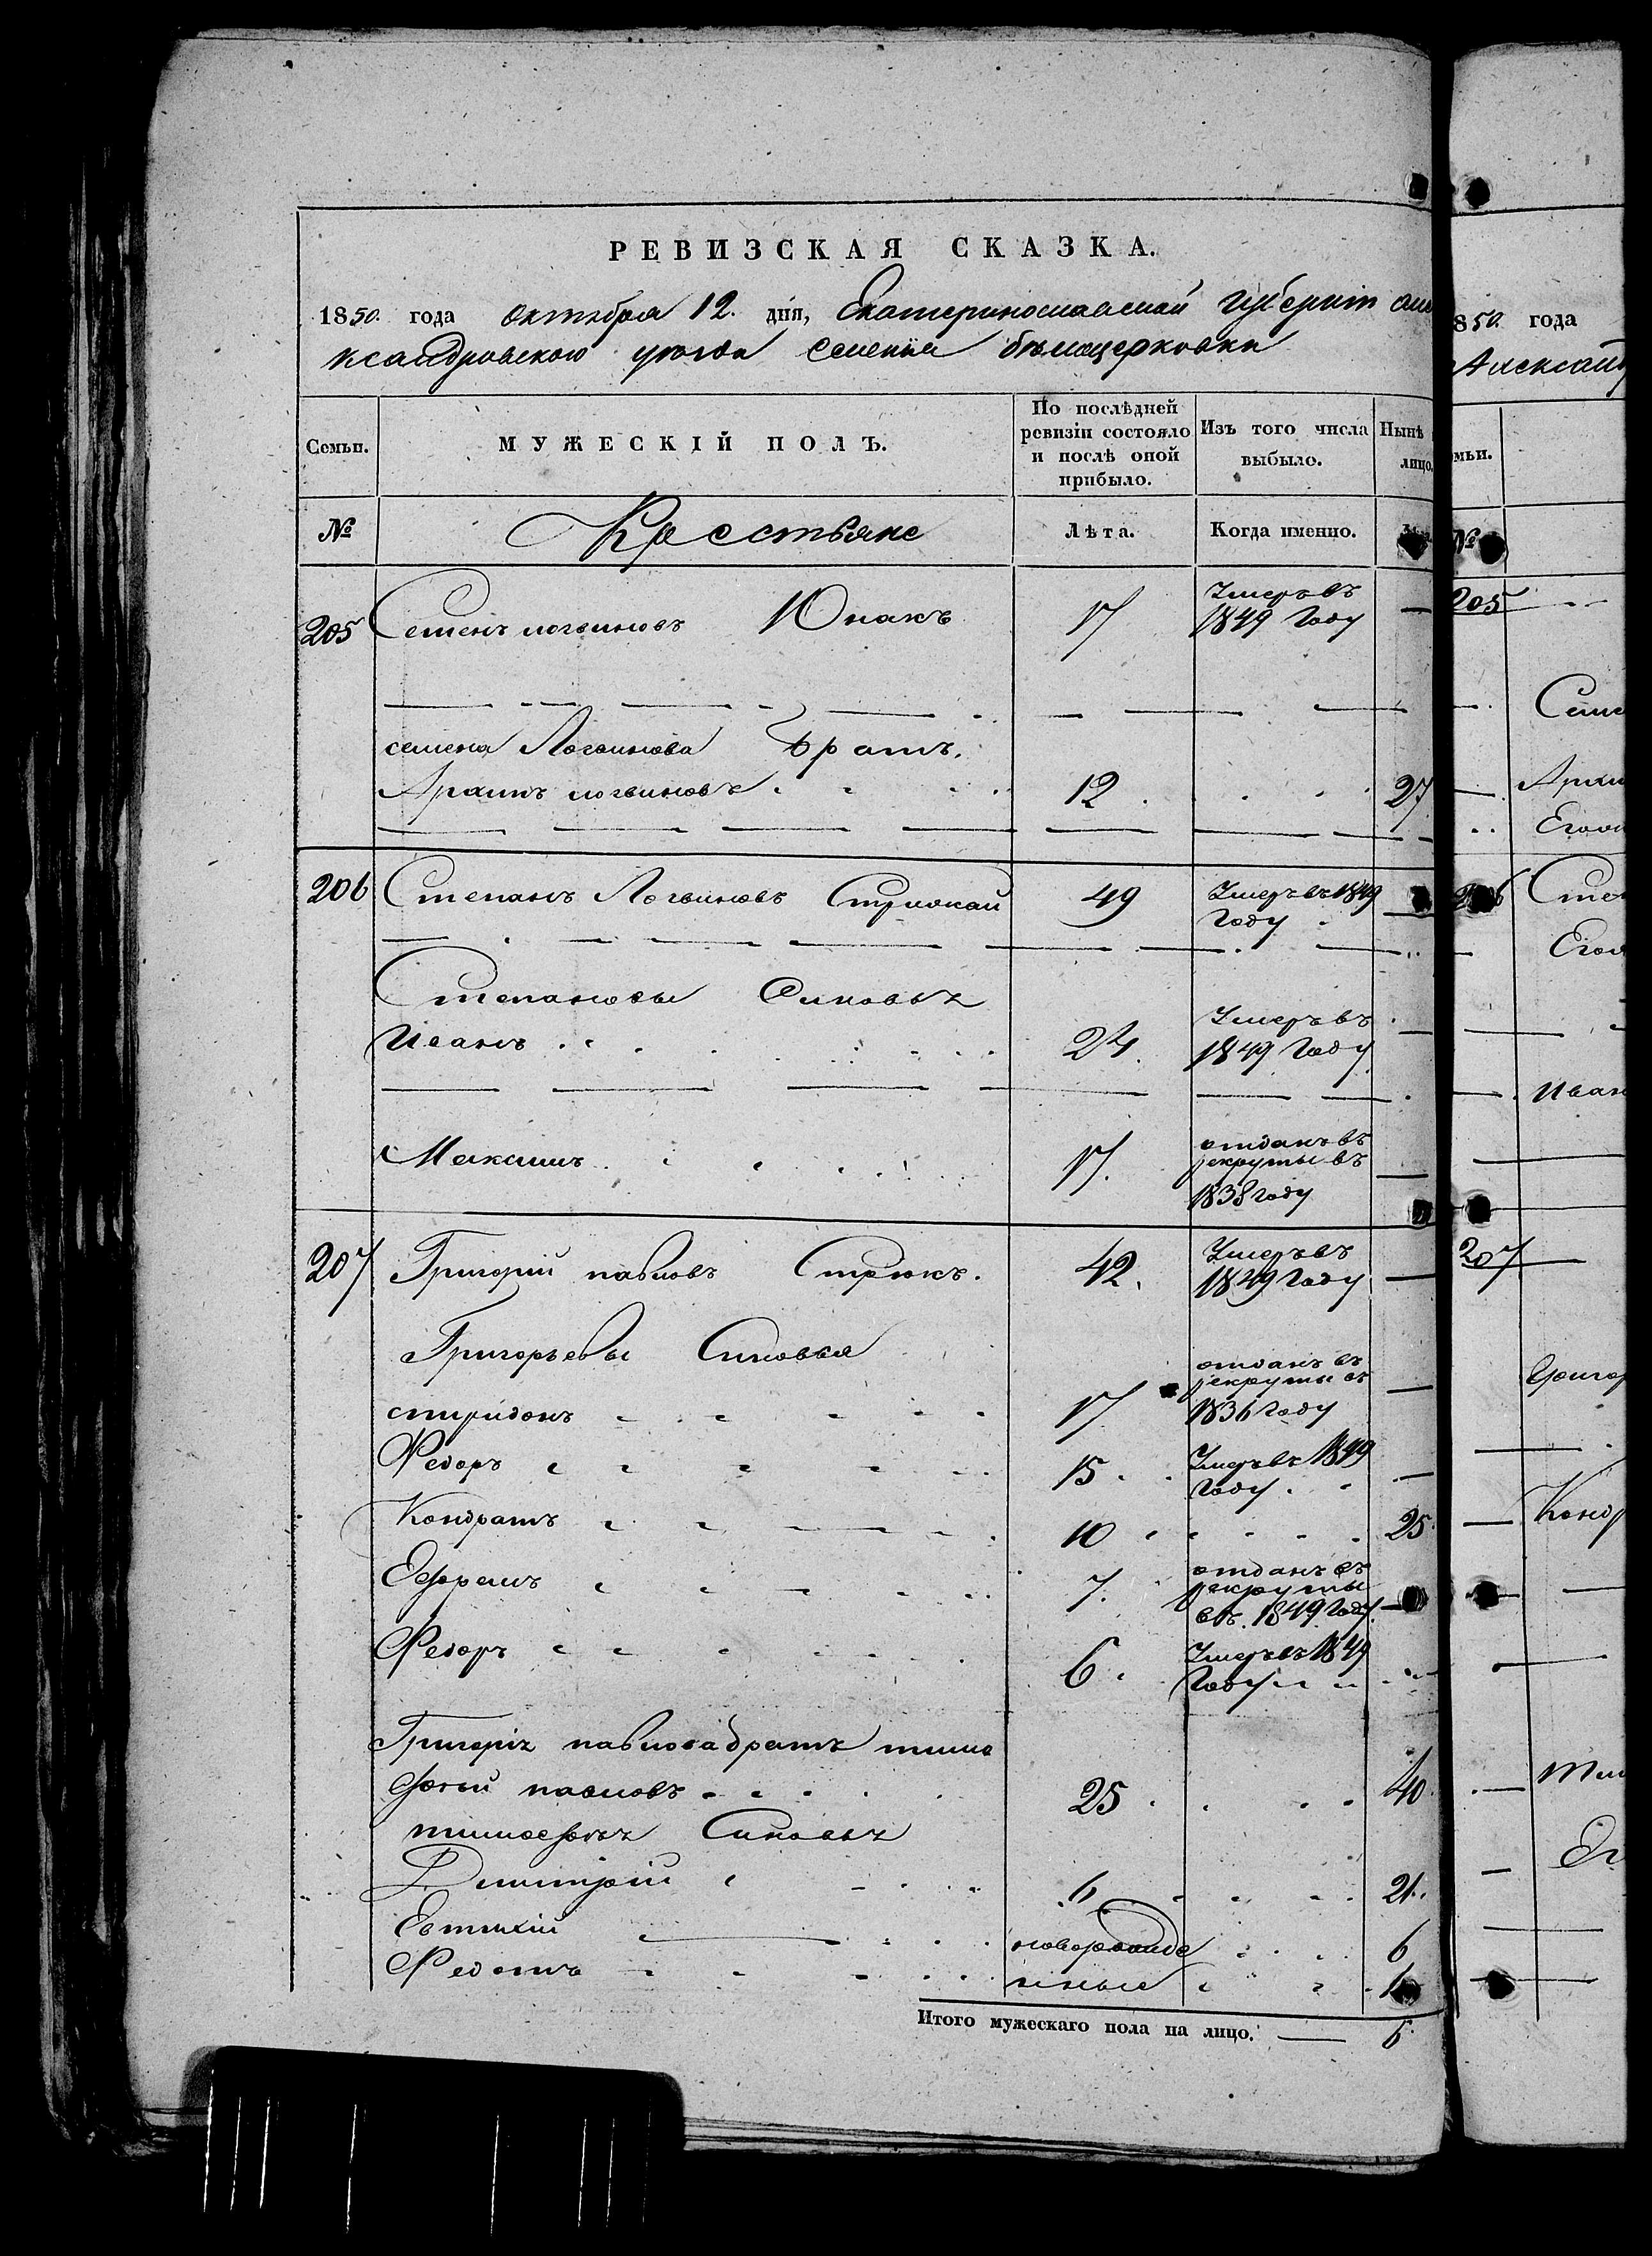 РЕВИЗСКАЯ СКАЗКА.
1850. года октября 12. дня, Екатеринославской губерніи але
ксандровскаго уезда селенія бѣлоцерковки
Семьи.
МУЖЕСКІЙ ПОЛЪ.
По послѣдней ревизіи состояло и послѣ оной прибыло.
Изъ того числа выбыло.
Нынѣ лицо
№
Крестьяне
Лѣта.
Когда именно.
205 Семенъ логвиновъ Юнакъ 17 Умеръ въ 1849 Году —
семена Логвинова Братъ.
логвиновъ 12 27
206 Степанъ Логвиновъ 49 Умеръ въ 1849 Году —
Степановы Синовья
Иванъ 24. Умеръ въ 1849 Году —
Максимъ 17. отданъ въ рекруты въ 1838 году —
207 Григорий павловъ Стрюкъ. 42. Умеръ въ 1849 Году —
Григорьевы Синовья
спиридонъ 17 отданъ въ рекруты въ 1836 Году —
Федоръ 15 Умеръ въ 1849 Году —
Кондратъ 10 25
Ефремъ 7. отданъ въ рекруты въ 1849 Году. —
Федоръ 6 Умеръ въ 1849 Году
павлова братъ тимо
фей павловъ 25 40
Синовья
Димитрій 6 21
Евтихій новорожде 6
Федотъ нные
Итого мужескаго пола на лицо. — 6
1850. года
Александ
мьи.
№
205
Семе
Архи
206 Степ
Иван
207
Григор
Конд
Тим